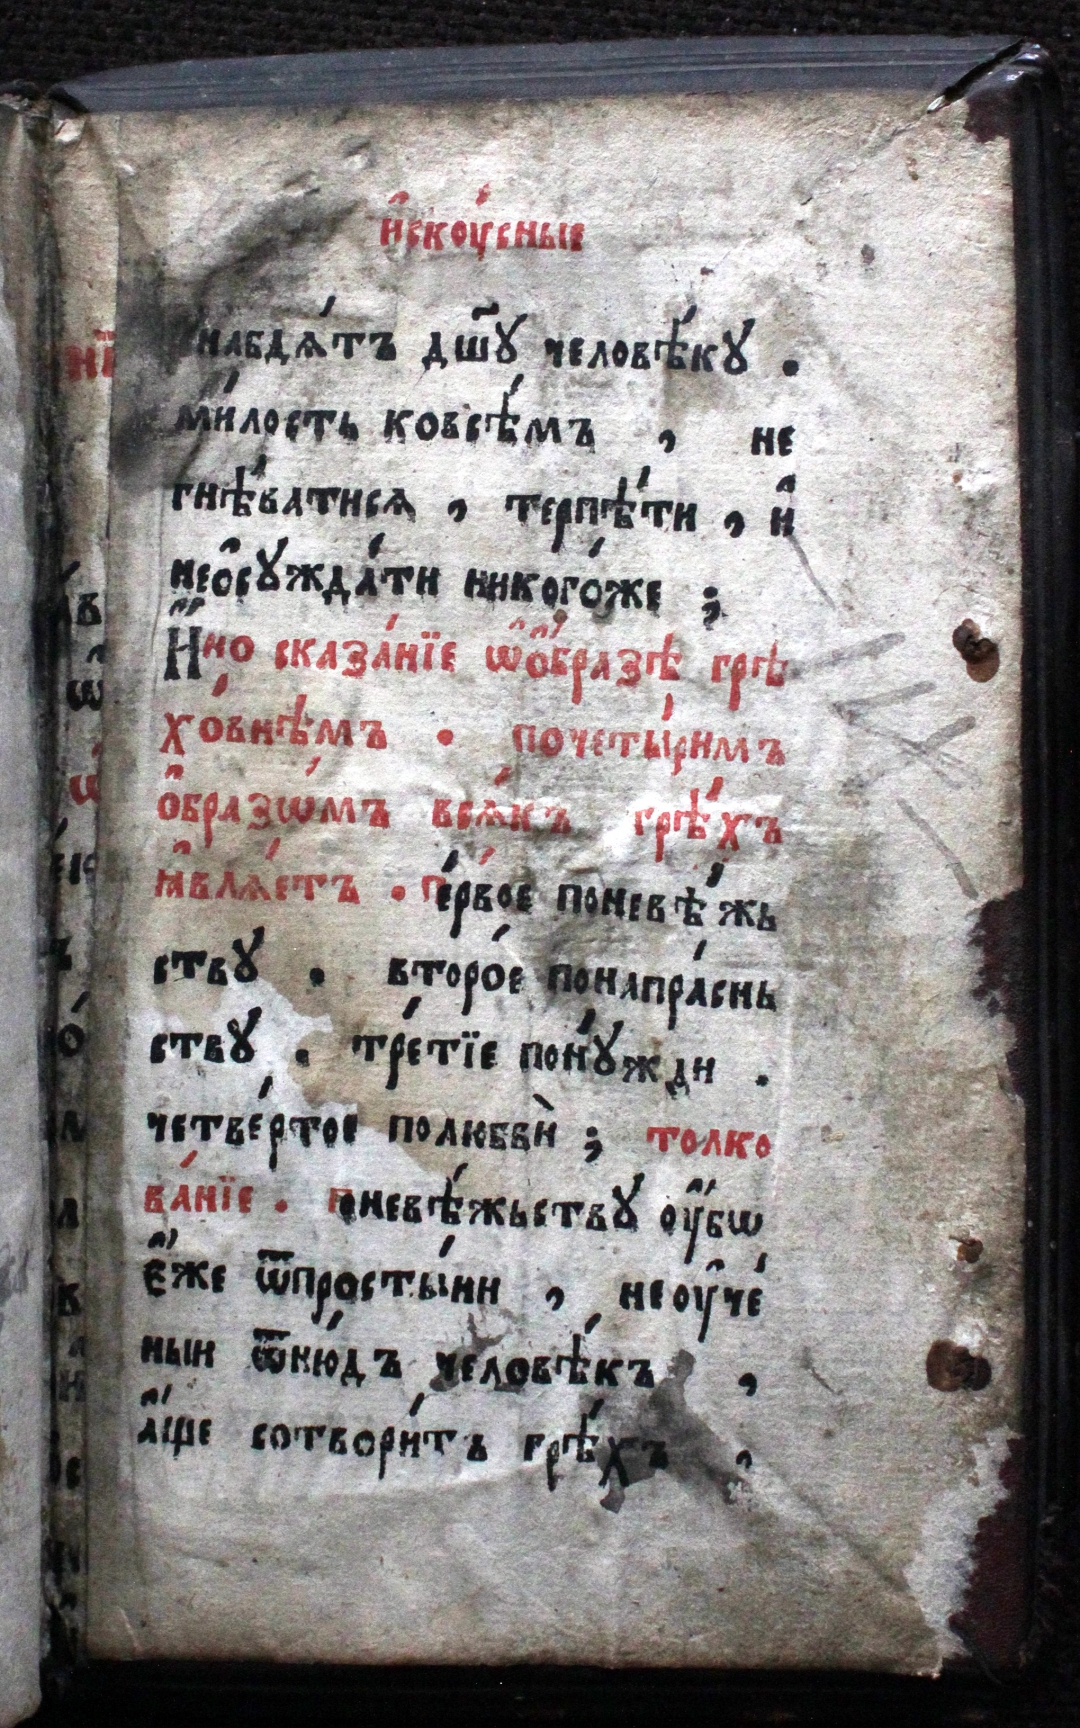 и҆скꙋ́сныѧ
набдѧ́тъ дш҃ꙋ человѣ́кꙋ .
ми́лость ковсѣ́мъ , не
гнѣ́ватисѧ , терпѣ́ти , и҆
неѻ҆сꙋжда́ти никого́же ;
И҆́но сказа́нїе ѿѻ҆́бразѣ грѣ
хо́внѣмъ . почеты́римъ
ѻ҆бразѡ́мъ всѧ́къ грѣ́хъ
ꙗ҆влѧ́етъ . П́е́рвое поневѣ́жь
ствꙋ . второ́е понапра́снь
ствꙋ . тре́тїе понꙋ́жди .
четве́ртое полюбвѝ ; толко
ва́нїе . Поневѣ́жьствꙋ оу҆́бѡ
є҆́же ѿпросты́ни , неоу҆че́
ныи ѿню́дъ человѣ́къ ,
а҆́ще сотвори́тъ грѣ́хъ ,